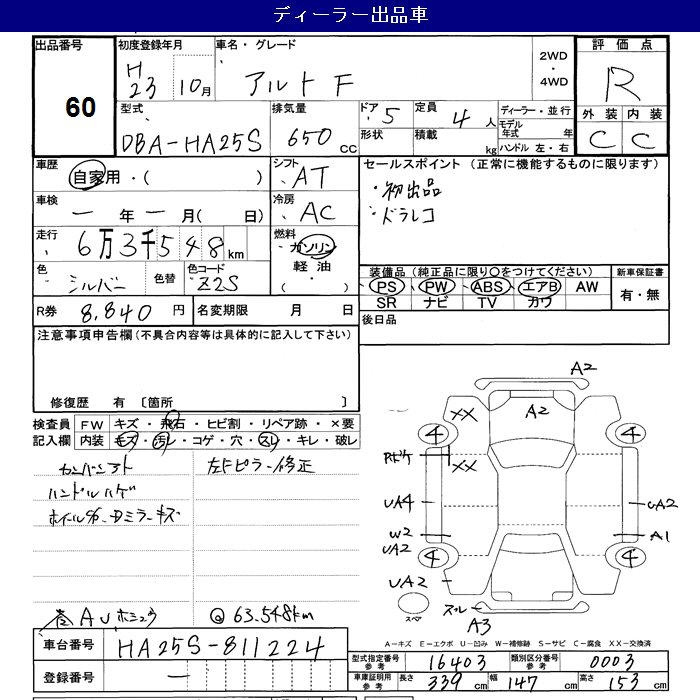 ディーラー出品車
出品番号
60
初度登録年月
H
23 10月
車名・グレード
アルト F
2WD
・
4WD
評価点
R
外装 内装
C C
型式
DBA-HA25S
排気量
650 cc
ドア 5
形状
定員 4 人
積載 kg
ディーラー・並行
モデル
年式 年
ハンドル 左・右
車歴
自家用・( )
シフト
AT
車検
一 年 一 月( 日)
冷房
AC
走行
6万3千548km
燃料
ガソリン
軽油・
( )
色
シルバー
色替
色コード
Z2S
R券 8,840 円
名変期限 月 日
セールスポイント (正常に機能するものに限ります)
・初出品
・ドラレコ
装備品(純正品に限り○をつけてください)
新車保証書
PS PW ABS エアB AW
SR ナビ TV カワ
有・無
後日品
注意事項申告欄(不具合内容等は具体的に記入して下さい)
修復歴 有 〔箇所 〕
検査員
記入欄
FW キズ・飛石・ヒビ割・リペア跡・×要
内装 キズ・汚レ・コゲ・穴・スレ・キレ・破レ
カンバンアト
ハンドルハゲ
左Fピラー修正
@ 63,548km
車台番号 HA25S-811224
登録番号 —
A2
A2
XX
XX
4
4
UA4
UA2
W2
A1
UA2
4
4
UA2
スペア
スレ
A3
A-キズ E-エクボ U-凹み W-補修跡 S-サビ C-腐食 XX-交換済
型式指定番号
参考
16403
類別区分番号
参考
0003
車庫証明用
参考
長さ 339 cm 幅 147 cm 高さ 153 cm